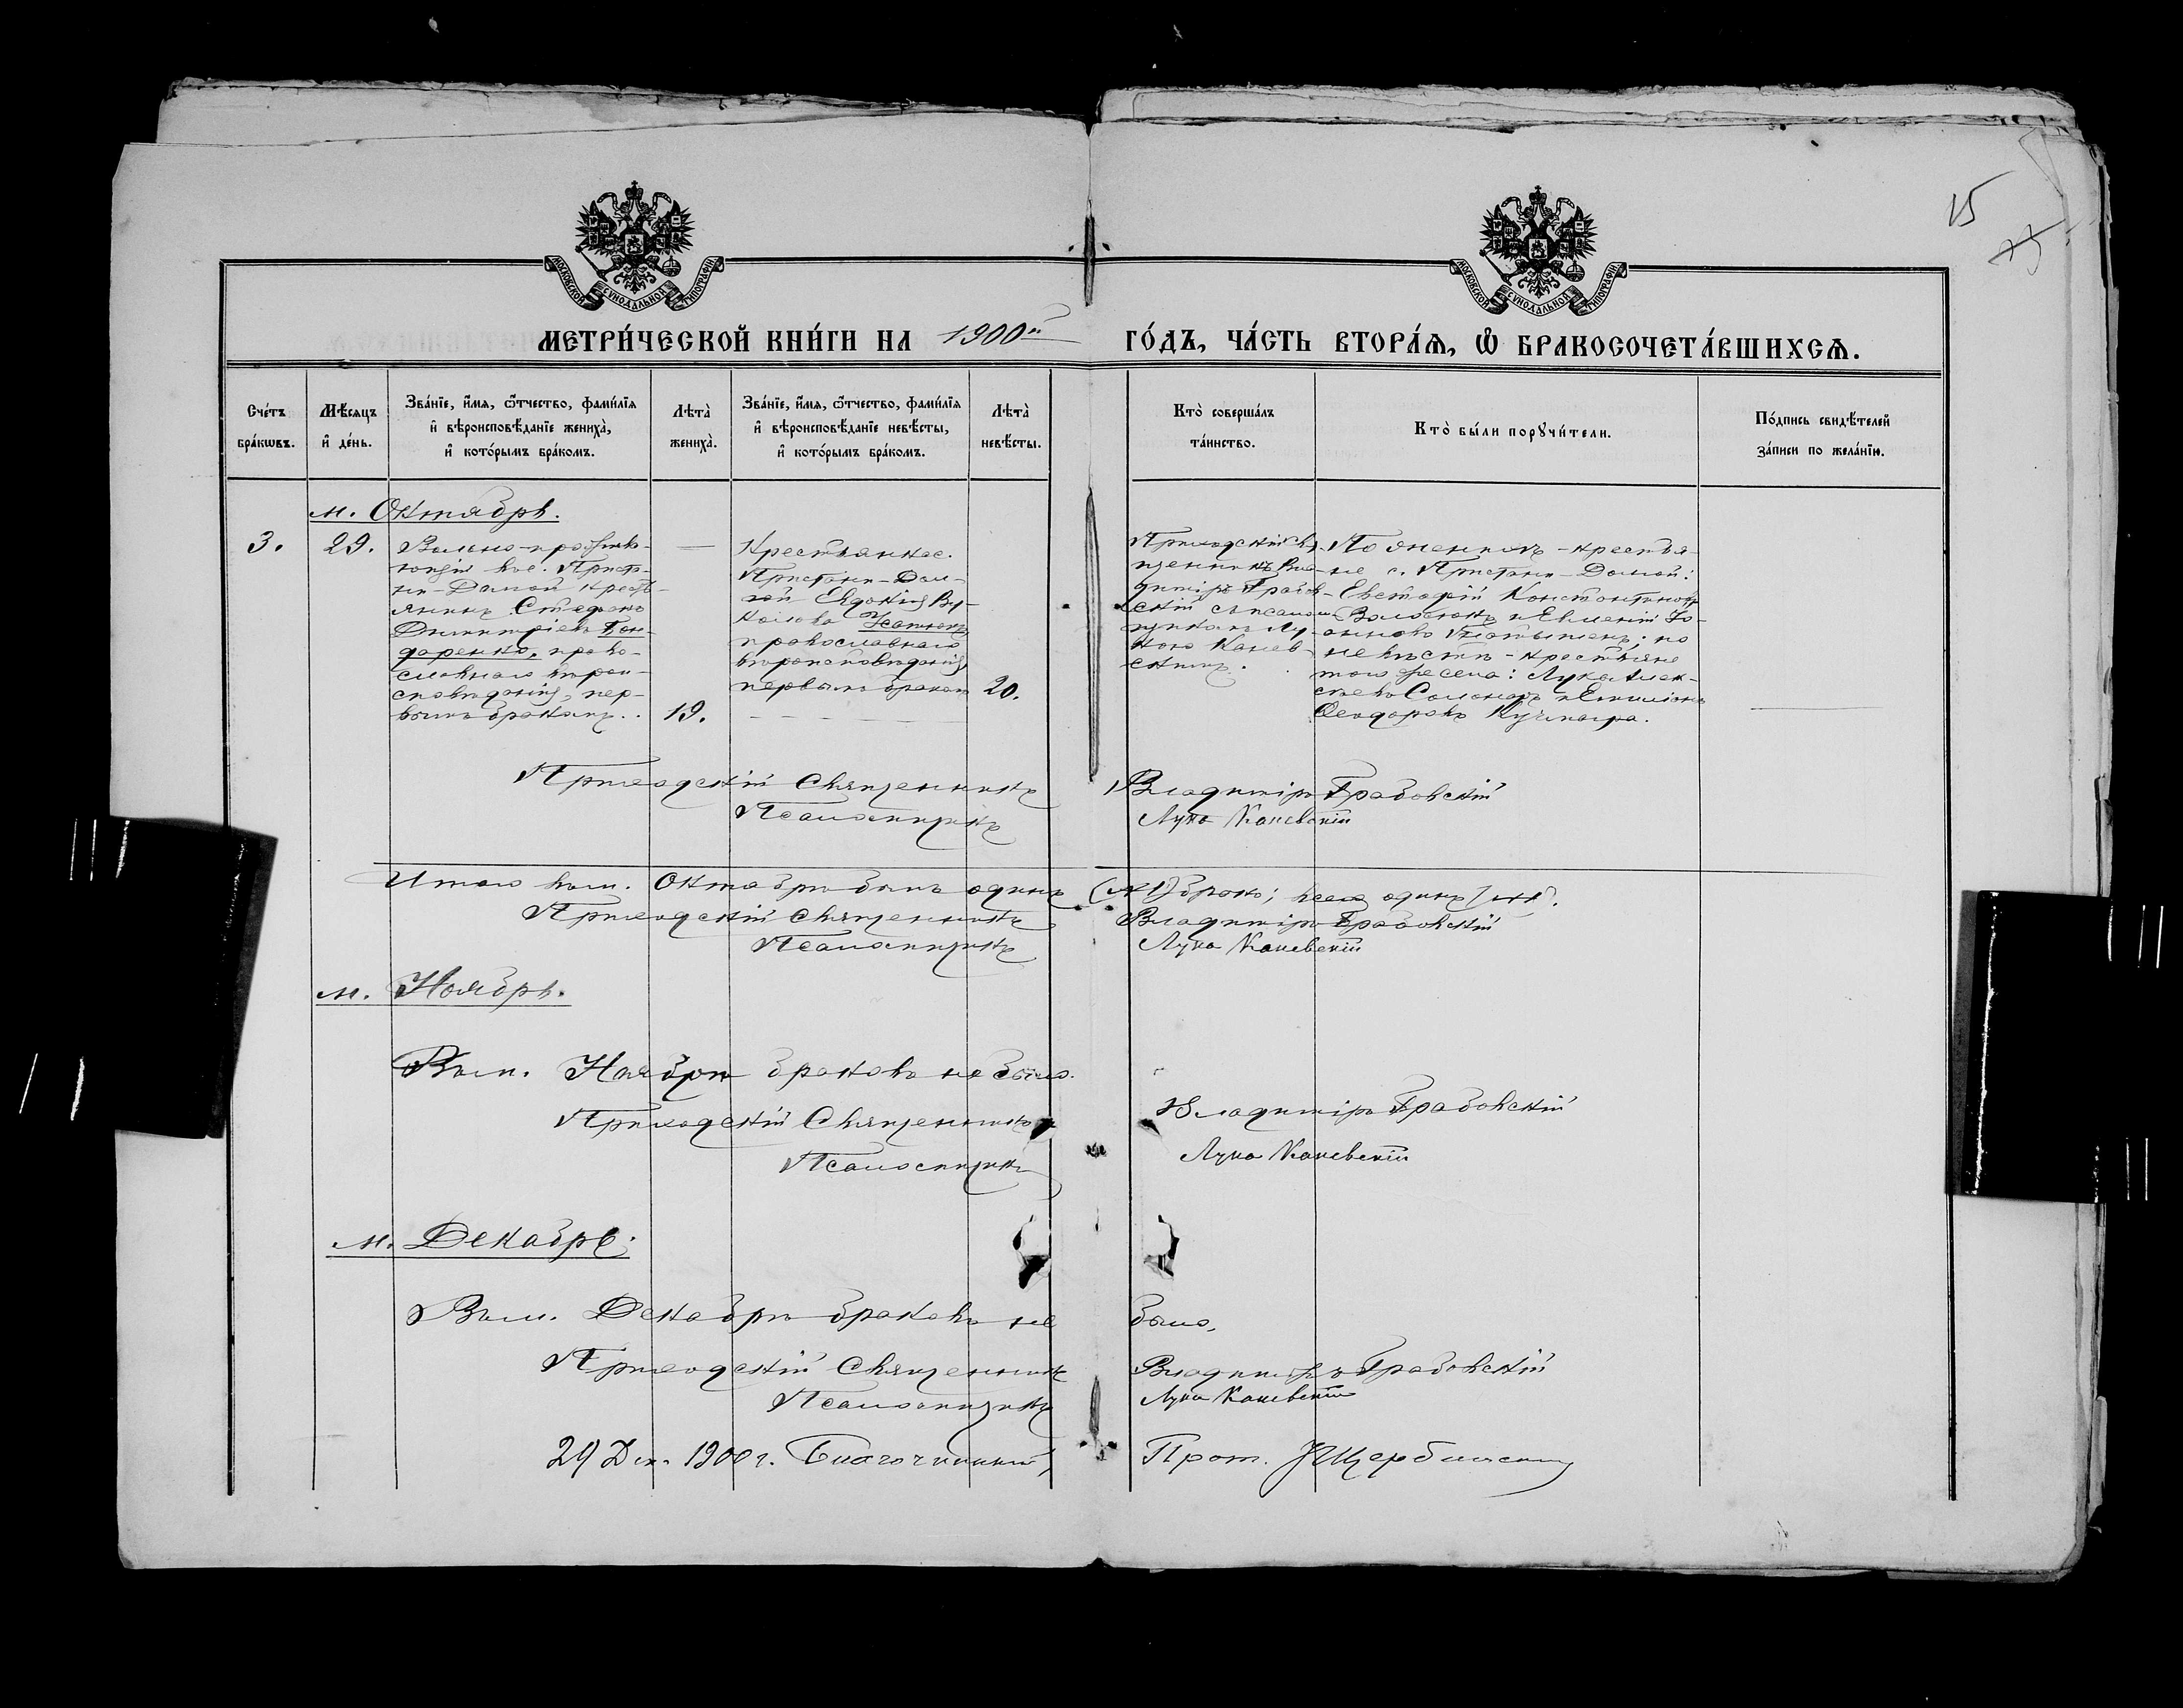 15
МОСКОВСКОЙ СѴНОДАЛЬНОЙ ТИПОГРАФІИ
МОСКОВСКОЙ СѴНОДАЛЬНОЙ ТИПОГРАФІИ
МЕТРИ́ЧЕСКОЙ КНИ́ГИ НА 1900й ГО́ДЪ, ЧА́СТЬ ВТОРА́Ѧ, Ѡ҆ БРАКОСОЧЕТА́ВШИХСѦ.
Сче́тъ
бра́кѡвъ.
Мѣ́сяцъ
и҆ де́нь.
Зва́нїе, и҆́мя, ѻ҆́тчество, фами́лїя
и҆ вѣроисповѣ́данїе жениха̀,
и҆ кото́рымъ бра́комъ.
Лѣта̀
жениха̀.
Зва́нїе, и҆́мя, ѻ҆́тчество, фами́лїя
и҆ вѣроисповѣ́данїе невѣ́сты,
и҆ кото́рымъ бра́комъ.
Лѣта̀
невѣ́сты.
Кто̀ соверша́лъ
та́инство.
Кто̀ бы́ли порꙋчи́тели.
По́дпись свидѣ́телей
за́писи по жела́нїю.
м. Октябрь.
3.
29.
Вольно-прожива-
ющій въ с. Приста-
ни-Долгой кресть-
янинъ Стефанъ
Димитріевъ Бон-
даренко, право-
славнаго вѣрои-
сповѣданія, пер-
вымъ бракомъ..
19.
Крестьянка с.
Пристани-Дол-
гой Евдокія Ву-
колова
православнаго
вѣроисповѣданія
первымъ бракомъ
20.
Приходскій Свя-
щенникъ Вла-
диміръ Грабов-
скій съ псалом-
щикомъ Лу-
кою Канев-
скимъ.
По женихѣ - крестья-
не с. Пристани-Долгой:
Евстафій Константиновъ
и Евменій Іо-
анновъ по
невѣстѣ - крестьяне
того же села: Лука Алек-
сѣевъ и Емиліанъ
Ѳеодоровъ
Приходскій Священникъ Владиміръ Грабовскій
Псаломщикъ Лука Каневскій
Итого въ м. Октябрѣ былъ одинъ (№1) бракъ; всего одинъ №1.
Приходскій Священникъ Владиміръ Грабовскій
Псаломщикъ Лука Каневскій
м. Ноябрь.
Въ м. Ноябрѣ браковъ не было.
Приходскій Священникъ Владиміръ Грабовскій
Псаломщикъ Лука Каневскій
м. Декабрь.
Въ м. Декабрѣ браковъ не было.
Приходскій Священникъ Владиміръ Грабовскій
Псаломщикъ Лука Каневскій
29 Дек. 1900 г. Благочинный, Прот.